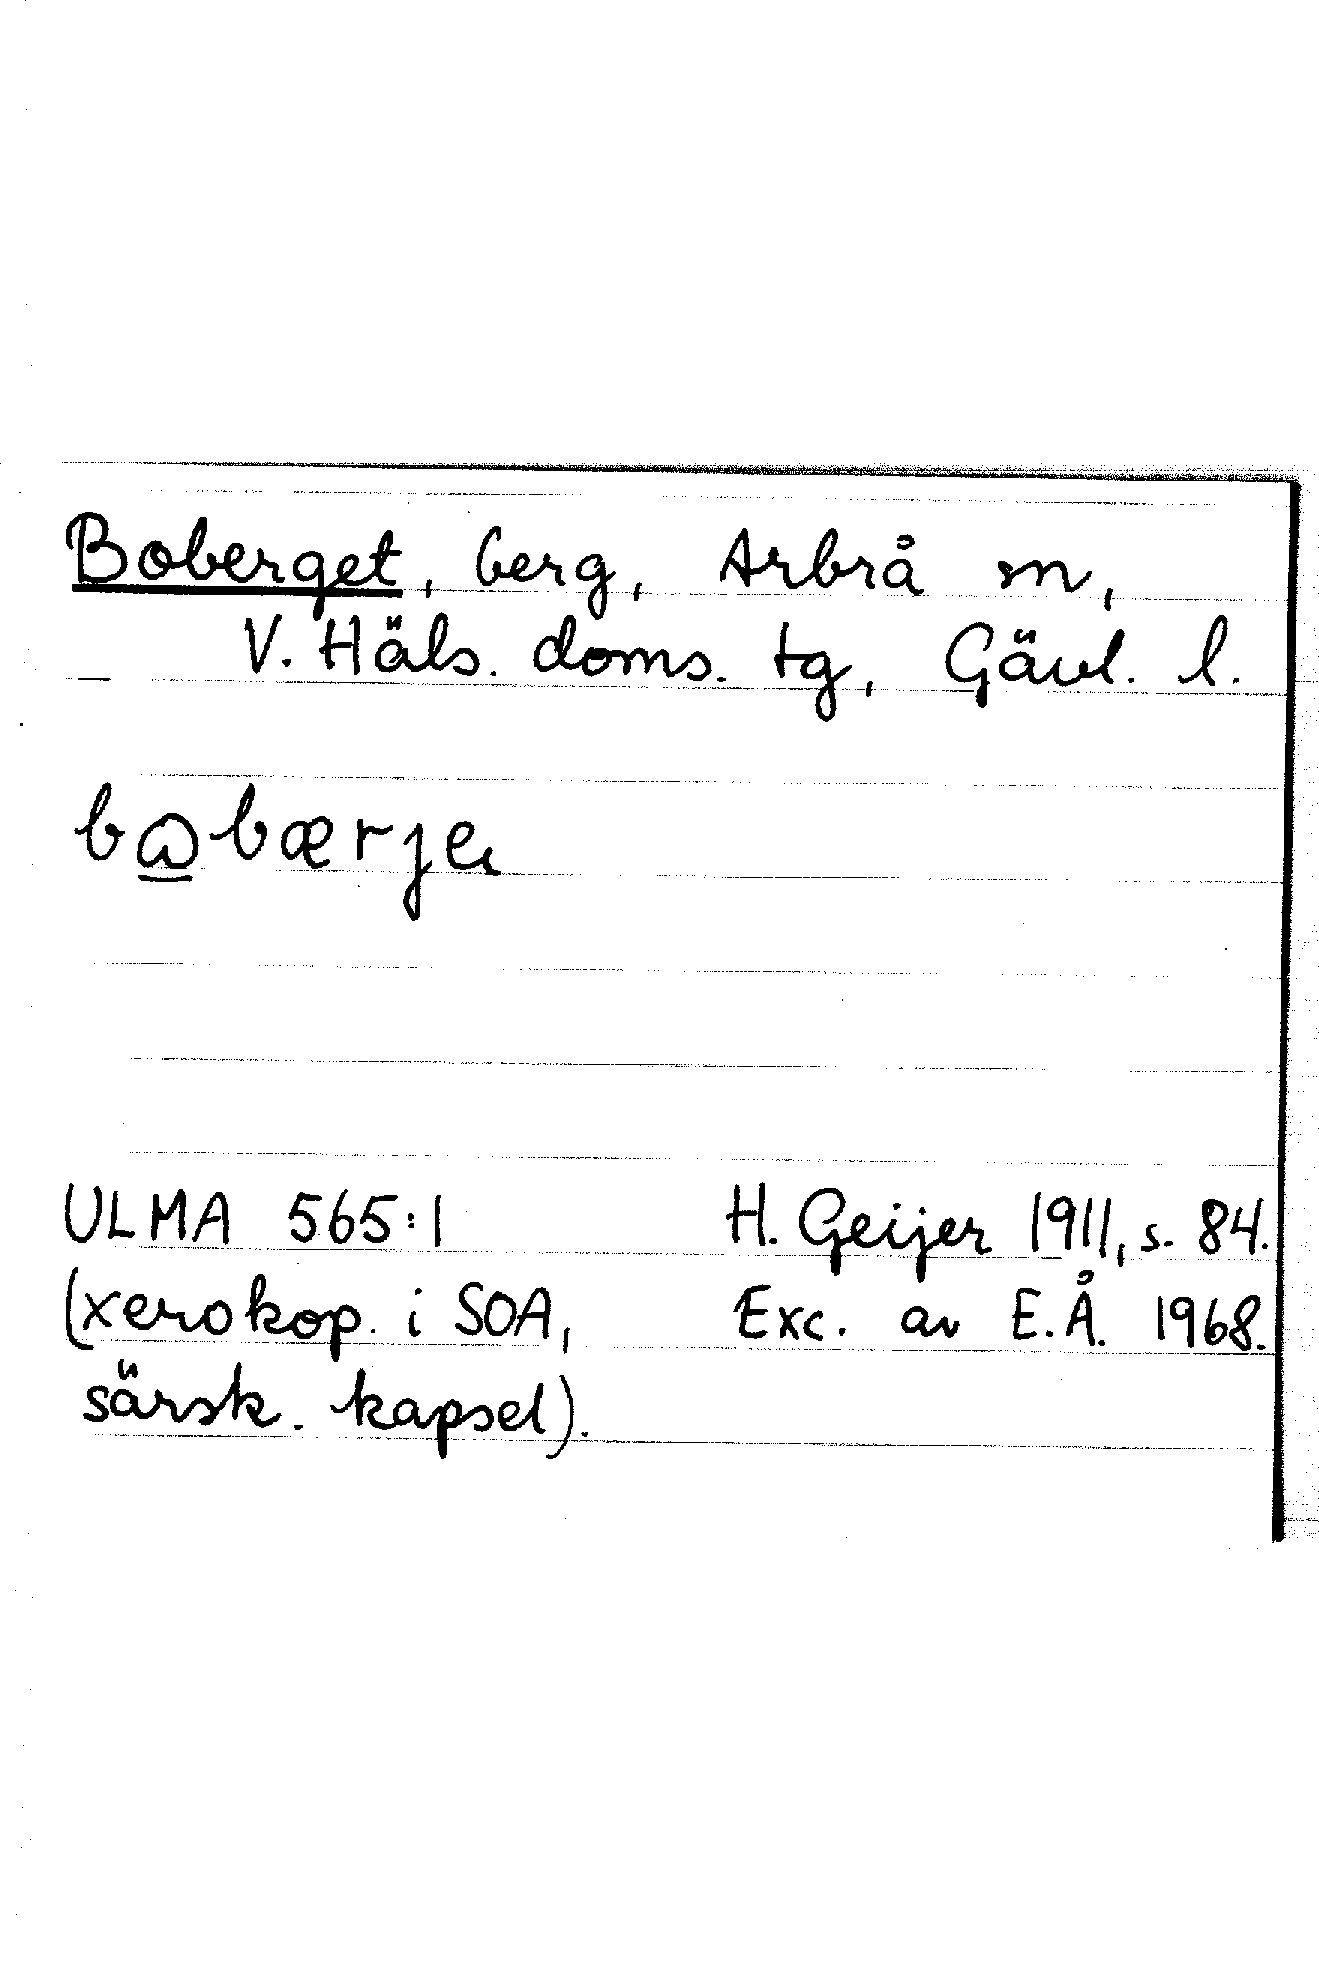 Boberget, berg, Arbrå sn,
V. Häls. doms. tg, Gävl. l.
bѡbærje
ULMA 565:1 H. Geijer 1911, s. 84.
(xerokop. i SOA, Exc. av E.Å. 1968.
särsk. kapsel).